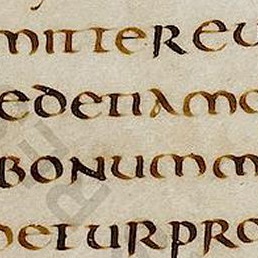 mittereu
edetiamo
bonumm
eturpro